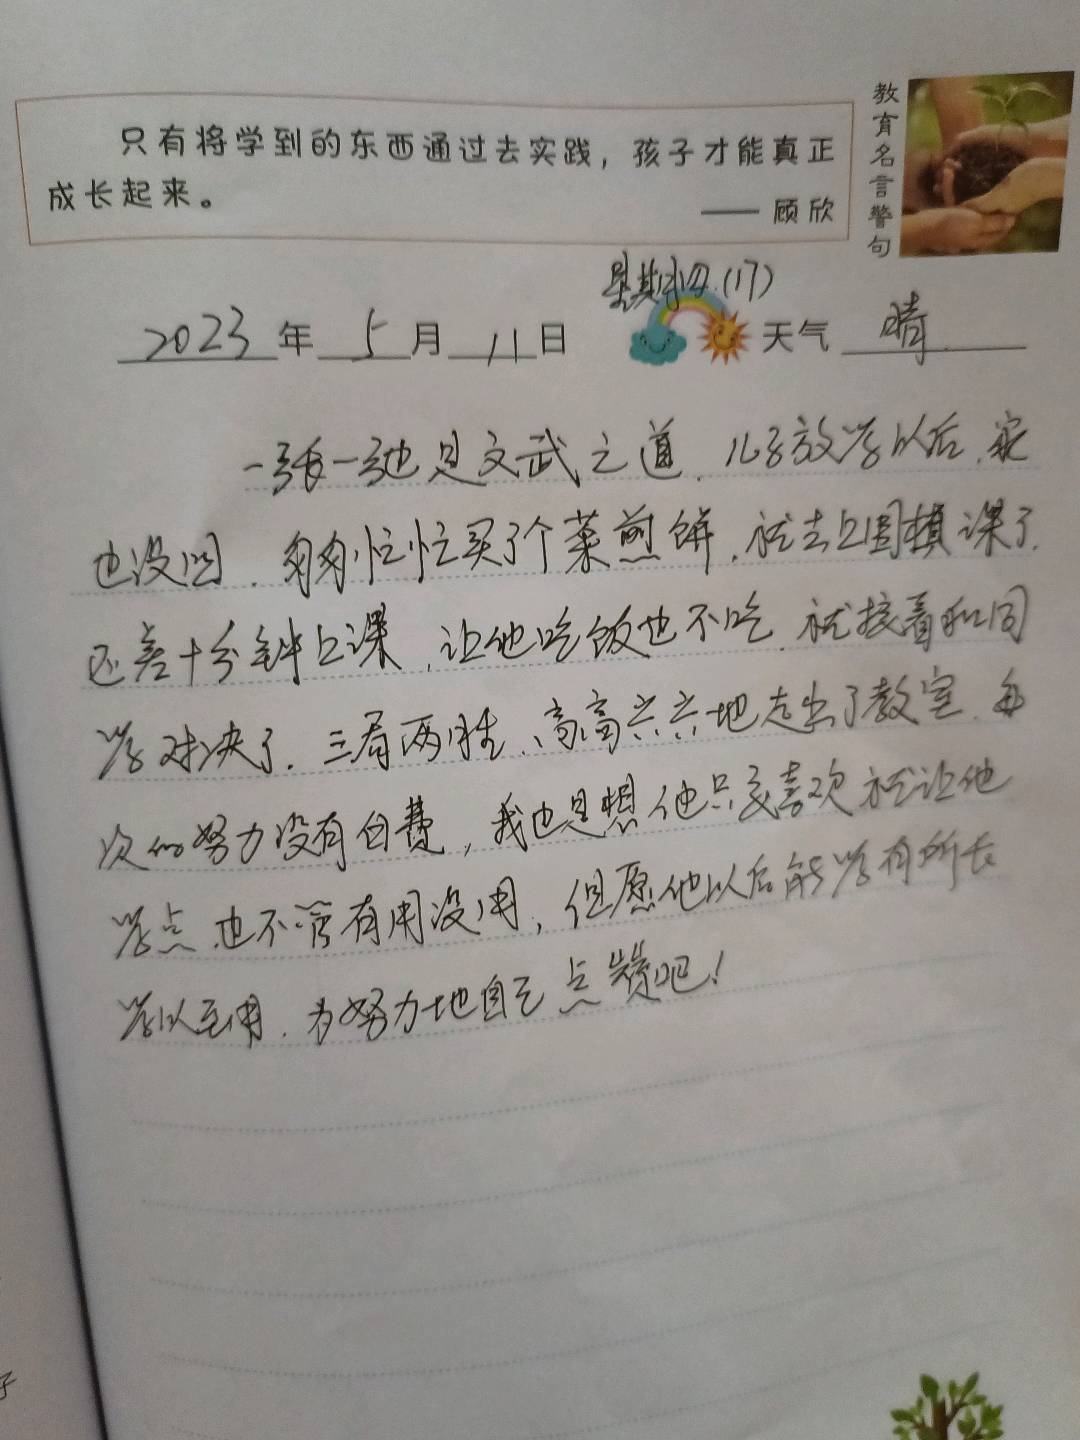 只有将学到的东西通过去实践，孩子才能真正
成长起来。
—— 顾欣
教育名言警句
星期四(17)
2023年5月11日 天气 晴
一张一弛是文武之道，儿子放学以后，家
也没回，匆匆忙忙买了个菜煎饼，就去上围棋课了，
还差十分钟上课，让他吃饭也不吃，就接着和同
学对决了，三局两胜，高高兴兴地走出了教室，每
次的努力没有白费，我也是想他只要喜欢就让他
学点，也不管有用没用，但愿他以后能学有所长
学以至用，为努力地自己点赞吧！
子